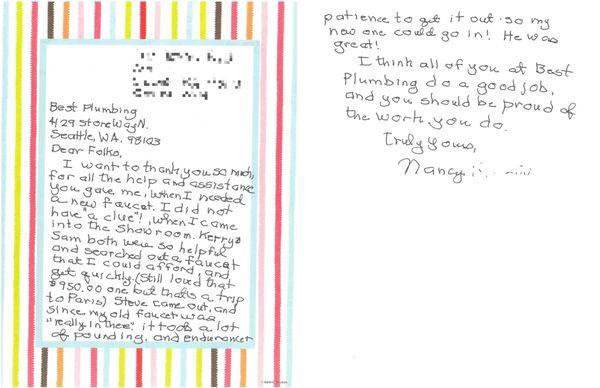 Best Plumbing
4129 Stone Way N.
Seattle, WA. 98103
Dear Folks,
I want to thank you so much,
for all the help and assistance
you gave me, when I needed
a new faucet. I did not
have "a clue"!, when I came
into the showroom. Kerry &
Sam both were so helpful
and searched out a faucet
that I could afford, and
get quickly. (Still loved that
$950.00 one but that's a trip
to Paris) Steve came out, and
since my old faucet was
"really in there", it took a lot
of pounding, and endurance
patience to get it out so my
new one could go in! He was
great!
I think all of you at Best
Plumbing do a good job,
and you should be proud of
the work you do.
Truly yours,
Nancy